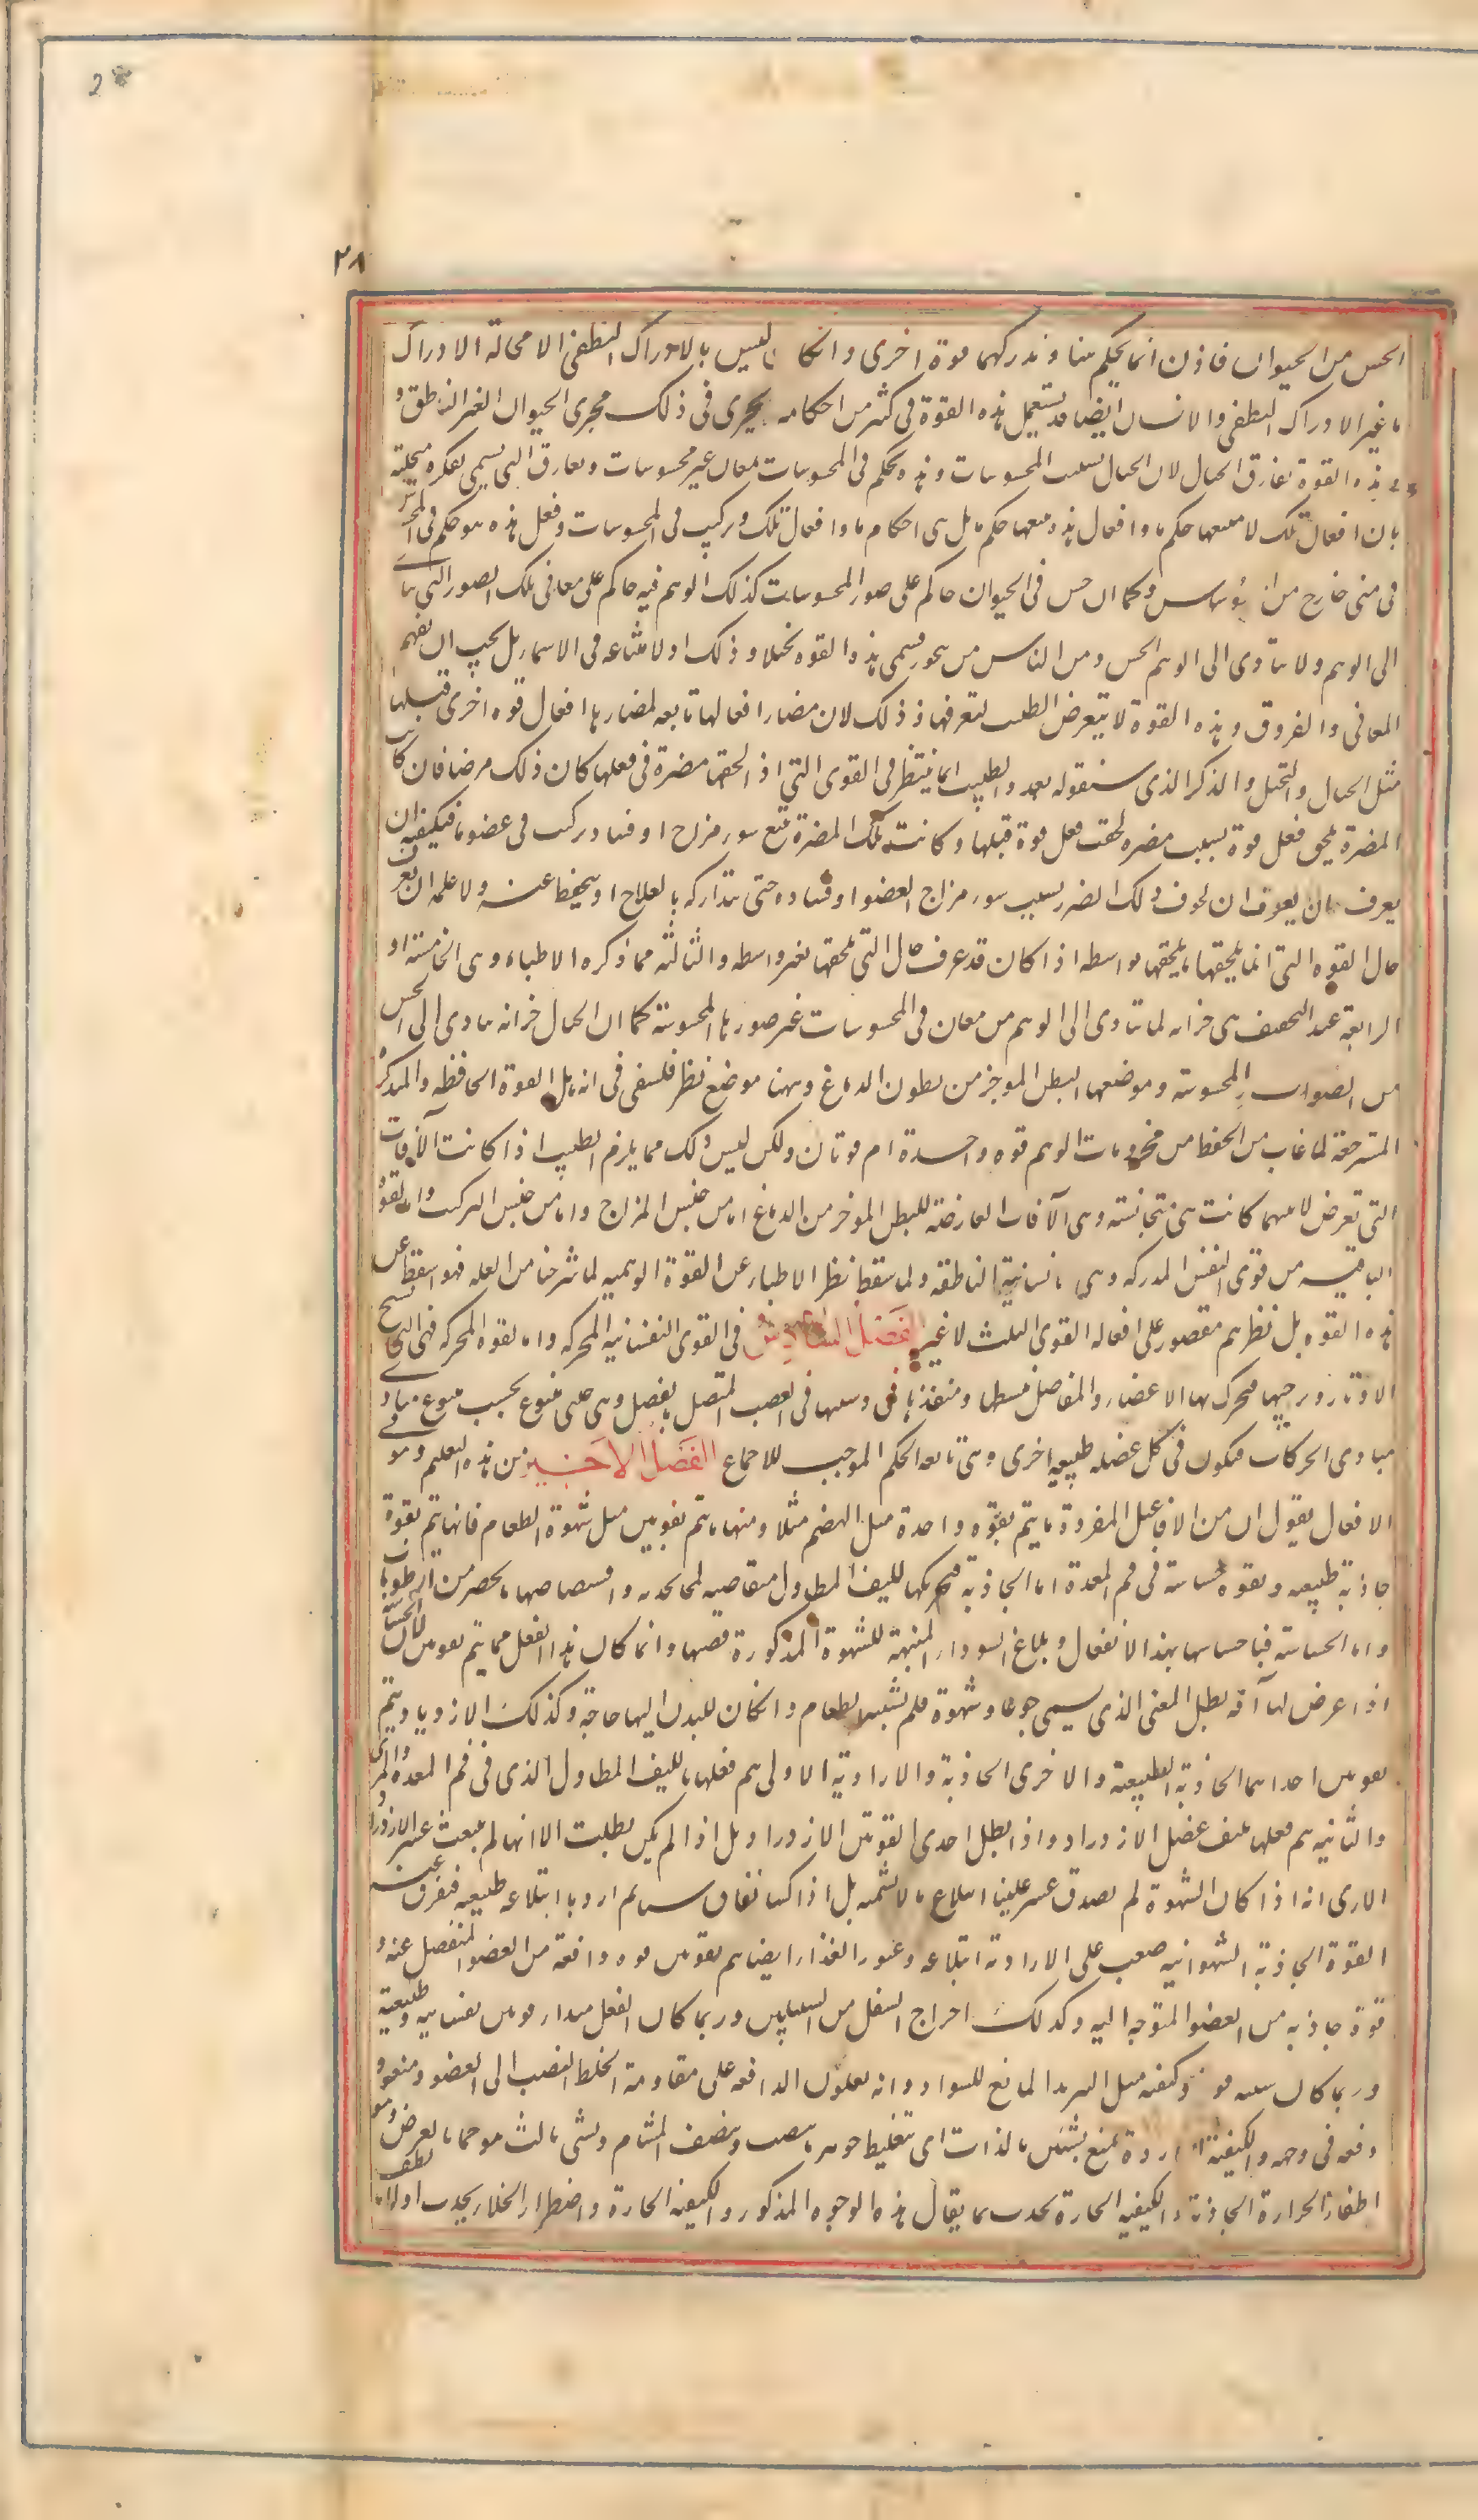 28
٢٨
الحس من الحيوان فاذن انما يحكم هناك ويدركها قوة اخرى وان كان ليس بالادراك النطقى الا محالة الادراك
ما غير الادراك النطقى والانسان ايضا قد يستعمل هذه القوة فى كثير من احكامه يجرى فى ذلك مجرى الحيوان الغير الناطق و
هذه القوة تفارق الخيال لان الخيال يستثبت المحسوسات وهذه تحكم فى المحسوسات بمعان غير محسوسات وتفارق التى تسمى مفكرة متخيلة
بان افعال تلك لا يتبعها حكم ما وافعال هذه يتبعها حكم ما بل هى احكام ما وافعال تلك تركيب فى المحسوسات وفعل هذه هو حكم فى المحسو
فى معنى خارج من المحسوس وكما ان الحس فى الحيوان حاكم على صور المحسوسات كذلك الوهم فيه حاكم على معانى تلك الصور التى تتأ
الى الوهم ولا تتادى الى الحس ومن الناس من يتجوز فيسمى هذه القوة تخيلا وذلك اذ لا مشاحة فى الاسماء بل يجب ان يفهم
المعانى والفروق وهذه القوة لا يتعرض الطبيب لتعرفها وذلك لان مضار افعالها تابعة لمضار افعال قوة اخرى قبلها
مثل الخيال والتخيل والذكر الذى سنقوله بعد والطبيب انما ينتظر فى القوى التى اذا لحقها مضرة فى فعلها كان ذلك مرضا فان كانت
المضرة تلحق فعل قوة بسبب مضرة لحقت فعل قوة قبلها وكانت تلك المضرة تتبع سوء مزاج او فساد تركيب فى عضو ما فيكفيه ان
يعرف ان يعرف لحوق ذلك الضرر بسبب سوء مزاج العضو او فساده حتى يتداركه بالعلاج او يتحفظ عنه ولا عليه ان يعرف
حال القوة التى انما يلحقها ما يلحقها بواسطة اذا كان قد عرف حال التى يلحقها بغير واسطة والثالثة مما ذكره الاطباء وهى الخامسة او
الرابعة عند التحقيق هى خزانة لما يتادى الى الوهم من معان فى المحسوسات غير صورها المحسوسة كما ان الخيال خزانة ما يتادى الى الحس
من الصور المحسوسة وموضعها البطن المؤخر من بطون الدماغ وههنا موضع نظر فلسفى فى انه هل القوة الحافظة والمتذكرة
المسترجعة لما غاب عن الحفظ من مخزونات الوهم قوة واحدة ام قوتان ولكن ليس ذلك مما يلزم الطبيب اذا كانت الآفات
التى تعرض لايهما كانت هى متجانسة وهى الآفات العارضة للبطن المؤخر من الدماغ اما من جنس المزاج واما من جنس التركيب واما القوة
الباقية من قوى النفس المدركة وهى الانسانية الناطقة ولما سقط نظر الاطباء عن القوة الوهمية لما شرحنا من العلة فهو اسقط عن
هذه القوة بل نظرهم مقصور على افعال القوى الثلث لا غير الفصل السادس فى القوى النفسانية المحركة واما القوة المحركة فهى التى تشنج
الاوتار وترخيها فتحرك بها الاعضاء والمفاصل تبسطها ومنفذها فى العصب المتصل بالعضل وهى جنس يتنوع بحسب تنوع مبادى
مبادى الحركات فيكون فى كل عضلة طبيعة اخرى وهى تابعة لحكم الموجب للاجماع الفصل الاخير من هذه التعليم وهو
الافعال نقول ان من الافاعيل المفردة ما يتم بقوة واحدة مثل الهضم مثلا ومنها ما يتم بقوتين مثل شهوة الطعام فانها تتم بقوة
جاذبة طبيعية وبقوة حساسة فى فم المعدة اما الجاذبة فبتحريكها الليف المطاول متقاضية لما تجذبه وامتصاصها ما يحضر من الرطوبات
واما الحساسة فباحساسها بهذا الانفعال وبلذع السوداء المنبهة للشهوة المذكورة قصتها وانما كان هذا الفعل مما يتم بقوتين لان الحساسة
اذا عرض لها آفة بطل المعنى الذى يسمى جوعا وشهوة فلم يشتهى الطعام وان كان للبدن اليها حاجة وكذلك الازدراد يتم
بقوتين احداهما الجاذبة الطبيعية والاخرى الجاذبة والارادية الاولى يتم فعلها بالليف المطاول الذى فى فم المعدة والمرى
والثانية يتم فعلها بليف عضل الازدراد واذا بطل احدى القوتين عسر الازدراد بل اذا لم يكن بطلت الا انها لم تنبعث عسر الازدراد
الا ترى انه اذا كان الشهوة لم تصدق عسر علينا ابتلاع ما لا نشتهيه بل اذا كنا نعاف شيئا ثم اردنا ابتلاعه فنفرت عنه
القوة الجاذبة الشهوانية صعب على الارادية ابتلاعه وعبور الغذاء ايضا يتم بقوتين قوة دافعة من العضو المنفصل عنه و
قوة جاذبة من العضو المتوجه اليه وكذلك اخراج الثفل من السبيلين وربما كان الفعل مبداءه قوتين نفسانية وطبيعية
وربما كان سببه قوة وكيفية مثل التبريد المانع للمواد فانه يعاون الدافعة على مقاومة الخلط المنصب الى العضو ومنعه و
دفعه فى وجهه والكيفية الباردة تمنع بشيئين بالذات اى تغليظ جوهر ما ينصب وتضييق المسام وبشئ ثالث هو مما بالعرض وهو
اطفاء الحرارة الجاذبة والكيفية الحارة تجذب بما يقابل هذه الوجوه المذكورة والكيفية الحارة واضطرار الخلاء يجذب اولا ما لطف